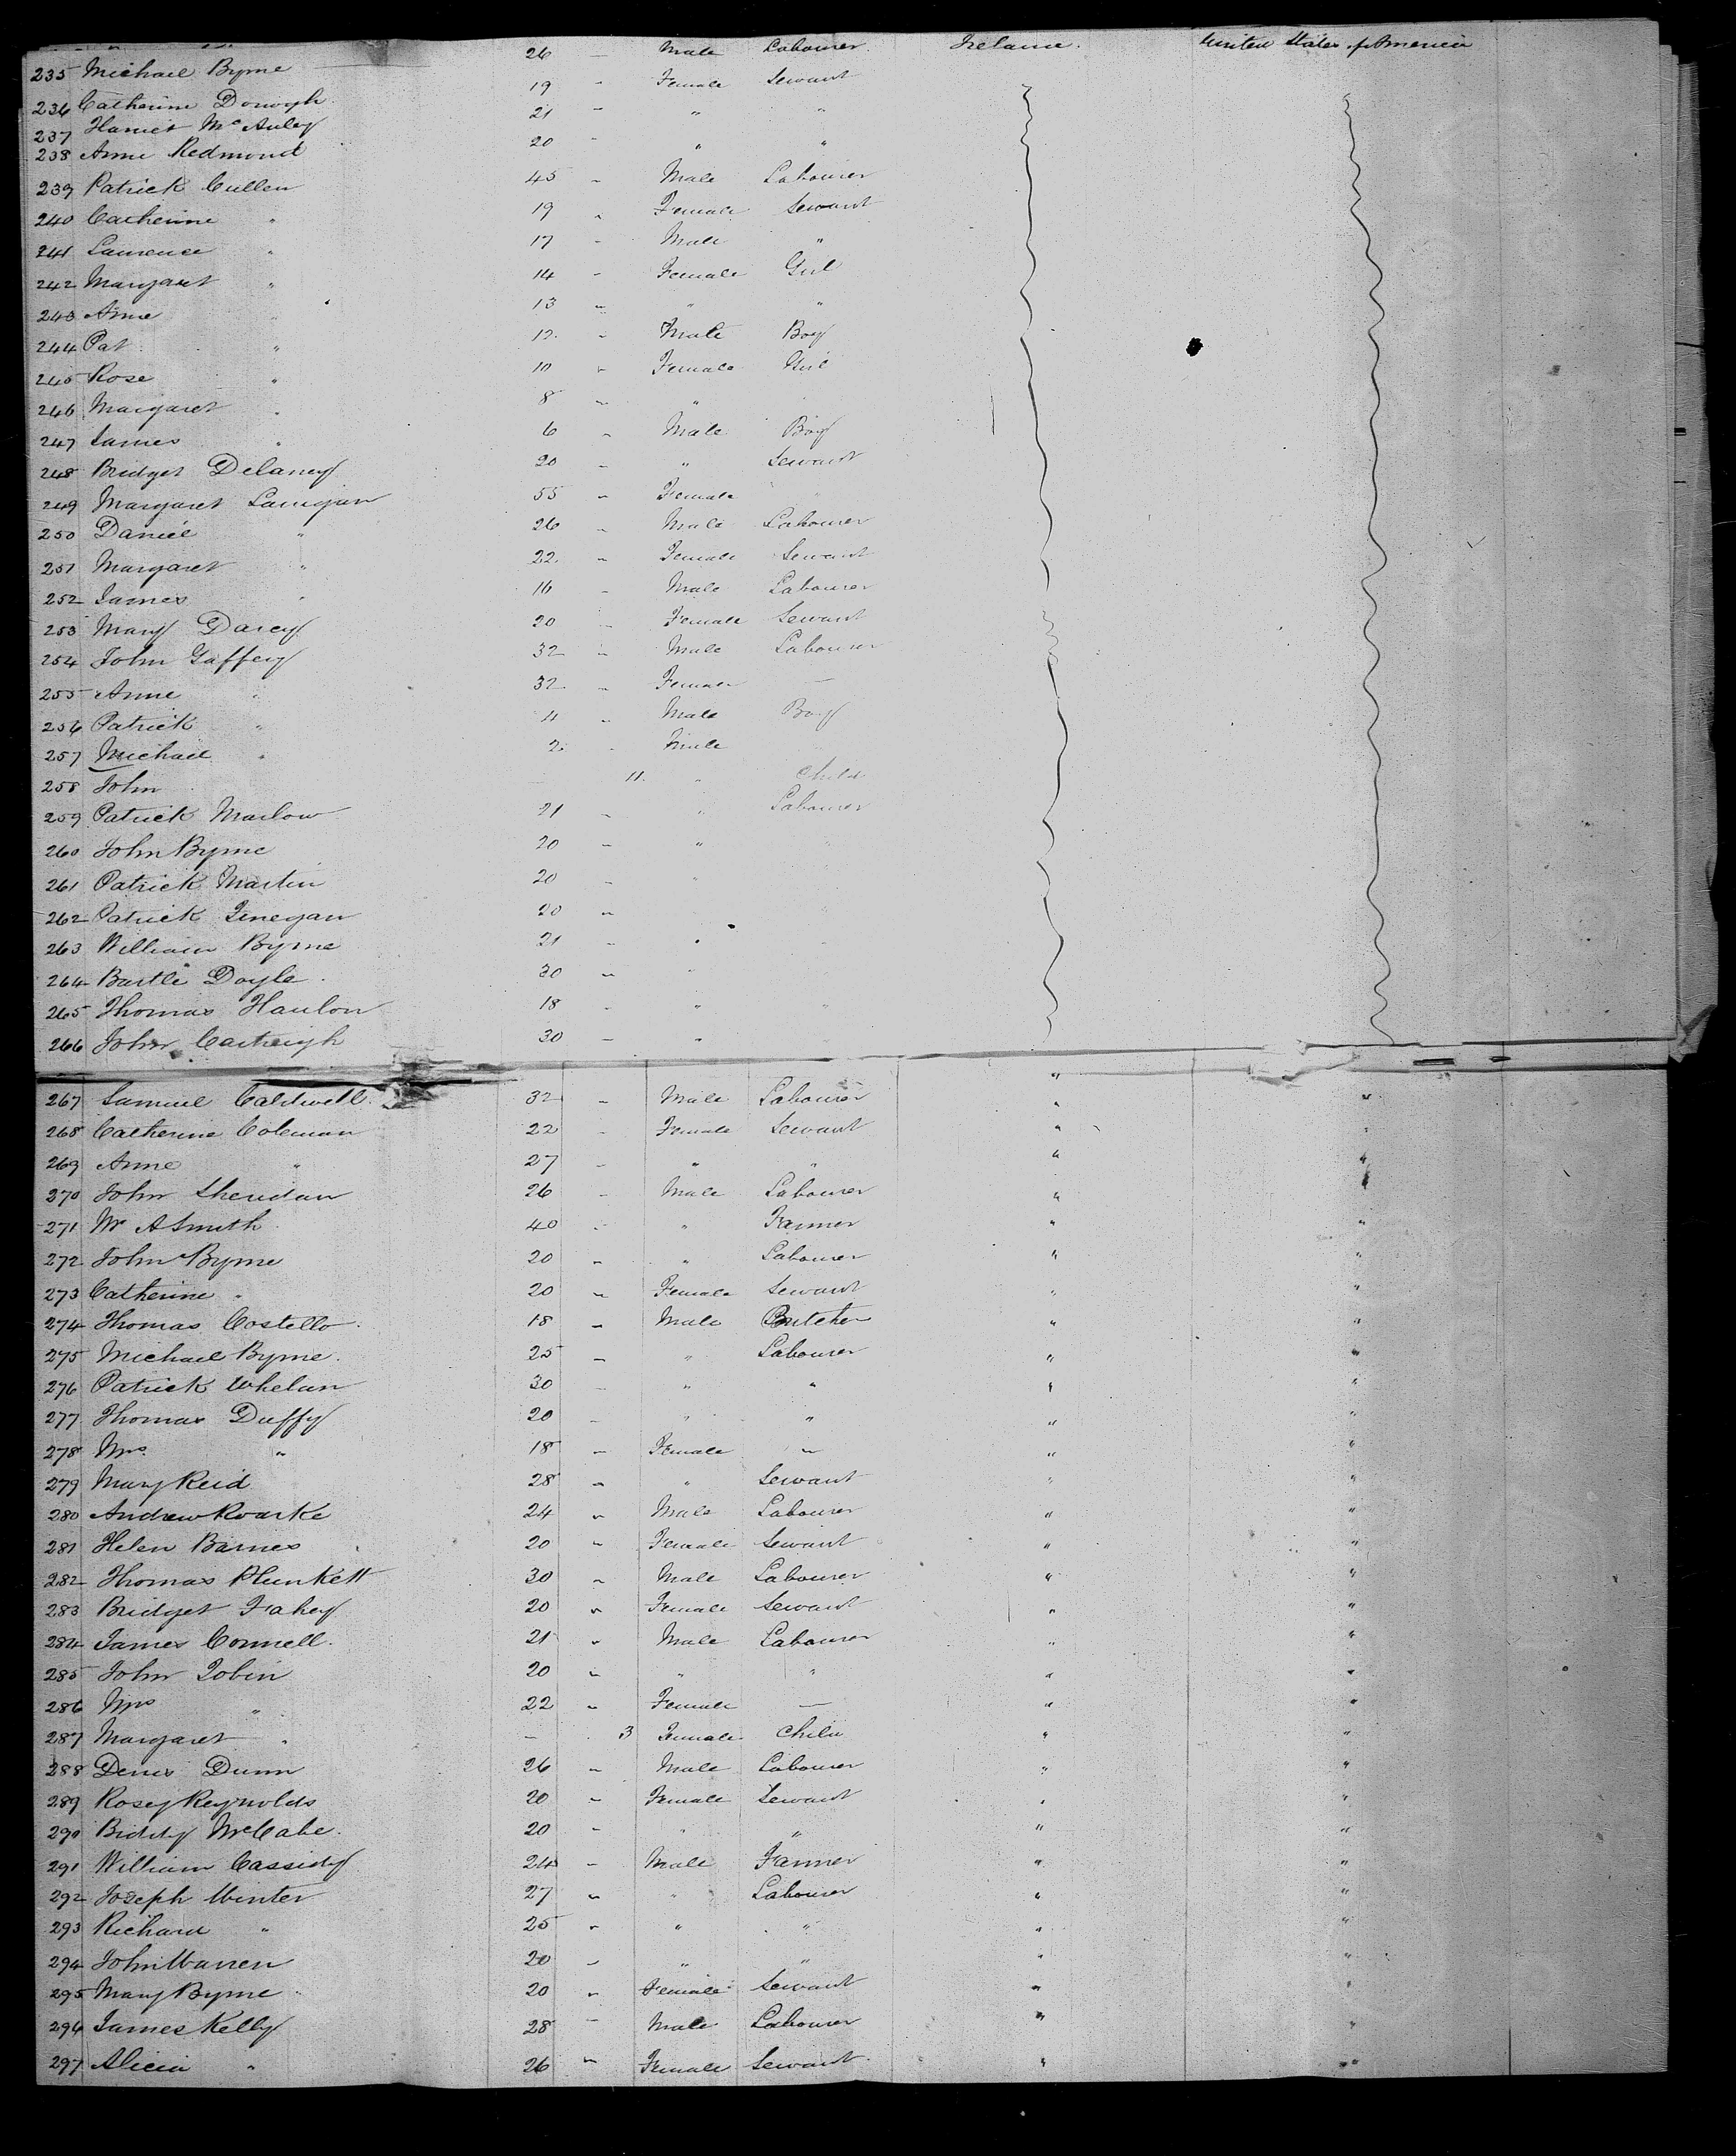 235 Michael Byrne 26 " Male Labourer Ireland United States of America
236 Catherine 19 " Female Servant
237 Harriet McAuley 21 " " "
238 Anne Redmond 20 " " "
239 Patrick Cullen 45 " Male Labourer
240 Catherine " 19 " Female Servant
241 Laurence " 17 " Male "
242 Margaret " 14 " Female Girl
243 Anne " 13 " " "
244 Pat " 12 " Male Boy
245 Rose " 10 " Female Girl
246 Margaret " 8 " "
247 James " 6 " Male Boy
248 Bridget Delaney 20 " " Servant
249 Margaret Lanigan 55 " Female
250 Daniel " 26 " Male Labourer
251 Margaret " 22 " Female Servant
252 James " 16 " Male Labourer
253 Mary Darcy 20 " Female Servant
254 John Gaffery 32 " Male Labourer
255 Anne " 32 " Female —
256 Patrick " 4 " Male Boy
257 Michael " 2 " Male
258 John 11 " Child
259 Patrick Marlow 21 " " Labourer
260 John Byrne 20 " "
261 Patrick Martin 20 " "
262 Patrick Finegan 20 "
263 William Byrne 21 " "
264 Bartle Doyle 30 " "
265 Thomas Hanlon 18 " "
266 John 30 " "
267 Samuel Caldwell 32 " Male Labourer " "
268 Catherine Coleman 22 " Female Servant " "
269 Anne " 27 " " " " "
270 John Sheridan 26 " Male Labourer " "
271 Mr A Smith 40 " " Farmer " "
272 John Byrne 20 " " Labourer " "
273 Catherine " 20 " Female Servant " "
274 Thomas Costello 18 " Male Butcher " "
275 Michael Byrne 25 " " Labourer " "
276 Patrick Whelan 30 " " " " "
277 Thomas Duffy 20 " " " " "
278 Mrs " 18 " Female " " "
279 Mary Reid 28 " " Servant " "
280 Andrew Roarke 24 " Male Labourer " "
281 Helen Barnes 20 " Female Servant " "
282 Thomas Plunkett 30 " Male Labourer " "
283 Bridget Fahey 20 " Female Servant " "
284 James Connell 21 " Male Labourer " "
285 John Tobin 20 " " " " "
286 Mrs " 22 " Female — " "
287 Margaret " — 3 Female Child " "
288 Denis Dunn 26 " Male Labourer " "
289 Rosey Reynolds 20 " Female Servant " "
290 Biddy McCabe 20 " " " " "
291 William Cassidy 24 " Male Farmer " "
292 Joseph Winter 27 " " Labourer " "
293 Richard " 25 " " " " "
294 John Warren 20 " " " " "
295 Mary Byrne 20 " Female Servant " "
296 James Kelly 28 " Male Labourer " "
297 Alicia " 26 " Female Servant " "